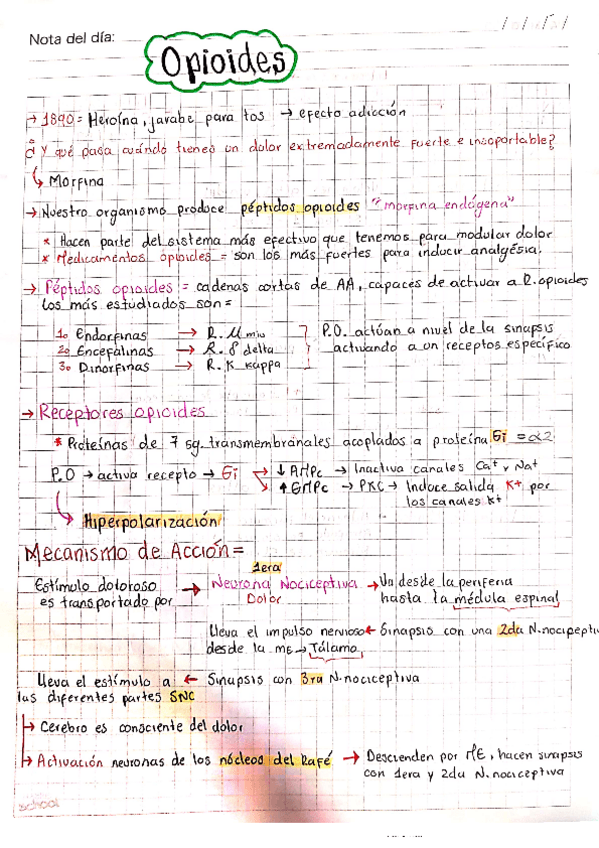 Nota del día:
Opioides
→ 1890 = Heroína, jarabe para tos → efecto adicción
¿Y qué pasa cuándo tienes un dolor extremadamente fuerte e insoportable?
↳ Morfina
→ Nuestro organismo produce péptidos opioides "morfina endógena"
* Hacen parte del sistema más efectivo que tenemos para modular dolor
* Medicamentos opioides = son los más fuertes para inducir analgésia.
→ Péptidos opioides = cadenas cortas de AA, capaces de activar a R. opioides
los más estudiados son =
1o Endorfinas → R. M miu
2o Encefalinas → R. δ delta
3o Dinorfinas → R. K kappa
P.O. actúan a nivel de la sinapsis
activando a un receptos específico
→ Receptores opioides
* Proteínas de 7 sg. transmembranales acoplados a proteína Gi = α2
P.O → activa recepto → Gi
↓ AMPc → Inactiva canales Ca+ y Na+
↑ GMPc → PKC → Induce salida K+ por
los canales K+
↳ Hiperpolarización
Mecanismo de Acción =
Estímulo doloroso
es transportado por
→ 1era
Neurona Nociceptiva
Dolor
→ Va desde la periferia
hasta la médula espinal
lleva el impulso nervioso ← Sinapsis con una 2da N. nocicepti
desde la ME → Tálamo
lleva el estímulo a ← Sinapsis con 3ra N. nociceptiva
las diferentes partes SNC
→ Cerebro es consciente del dolor
→ Activación neuronas de los núcleos del Rafé → Descienden por ME, hacen sinapsis
con 1era y 2da N. nociceptiva
school